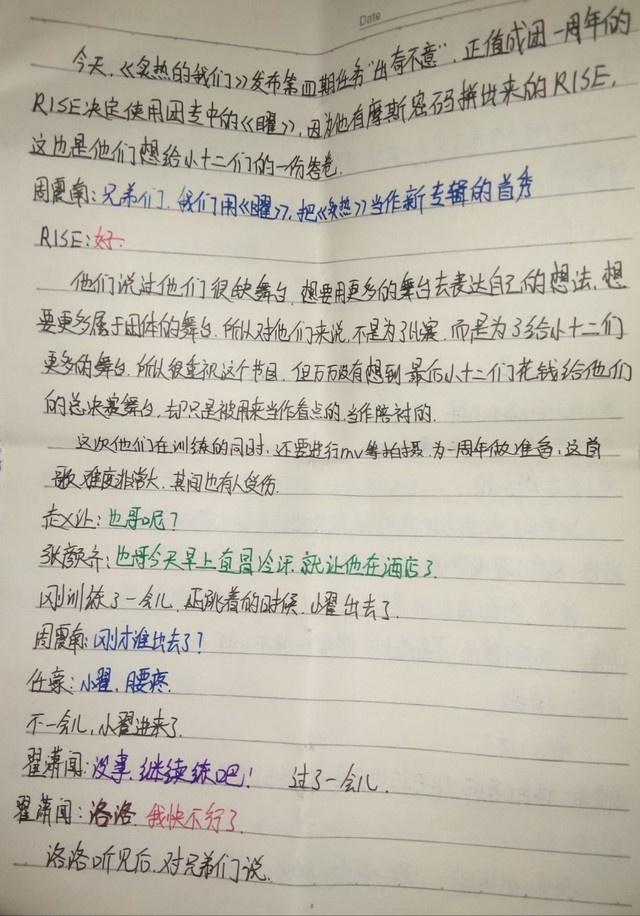 Date
今天,《炙热的我们》发布第四期任务"出奇不意",正值成团一周年的
RISE决定使用团专中的《曜》,因为他有摩斯密码拼出来的RISE,
这也是他们想给小十二们的一份答卷.
周震南:兄弟们,我们用《曜》,把《炙热》当作新专辑的首秀
RISE:好.
他们说过他们很缺舞台,想要用更多的舞台去表达自己的想法,想
要更多属于团体的舞台,所以对他们来说,不是为了比赛,而是为了给小十二们
更多的舞台,所以很重视这个节目,但万万没有想到最后小十二们花钱给他们
的总决赛舞台,却只是被用来当作看点的,当作陪衬的.
这次他们在训练的同时,还要进行mv等拍摄,为一周年做准备,这首
歌难度非常大,其间也有人受伤.
赵X让:也哥呢?
张颜齐:也哥今天早上直冒冷汗,就让他在酒店了.
刚训练了一会儿,正跳着的时候,小翟出去了.
周震南:刚才谁出去了?
任豪:小翟,腰疼.
不一会儿,小翟进来了.
翟潇闻:没事,继续练吧! 过了一会儿.
翟潇闻:洛洛,我快不行了.
洛洛听见后,对兄弟们说.